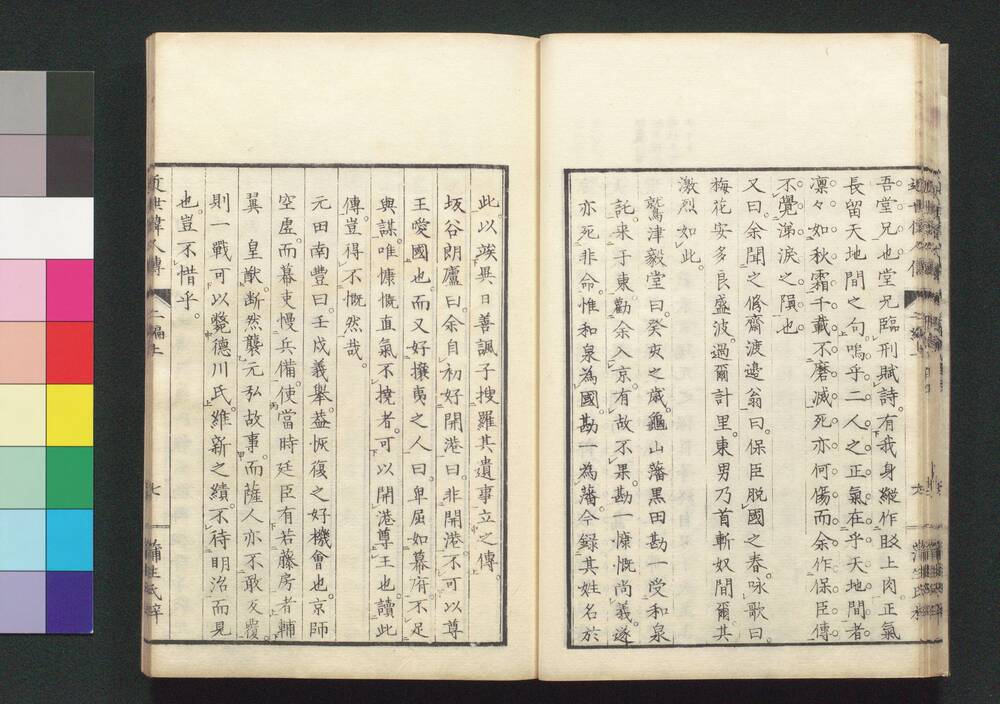 吾堂兄也。堂兄臨刑賦詩。有我身縱作貶上肉。正氣
長留天地間之句。嗚乎二人之正氣。在乎天地間者。
凛々如秋霜。千載不磨滅。死亦何傷。而余作保臣傳。
不覺涕淚之隕也。
又曰。余聞之脩齋渡邉翁。曰。保臣脱國之春。咏歌曰。
梅花安多良盛波。過爾計里。東男乃首斬奴間爾。其
激烈如此。
鷲津毅堂曰。癸亥之歳。龜山藩黒田勘一受和泉
託。来于東。勸余入京。有故不果。勘一慷慨尚義。遂
亦死非命。惟和泉為國。勘一為藩。今録其姓名於
此。以竢異日善諷子搜羅其遺事立之傳。
坂谷朗廬曰。余自初好開港。曰。非開港。不可以尊
王愛國也。而又好攘夷之人。曰。卑屈如幕府。不足
與謀。唯慷慨直氣不撓者。可以開港尊王也。讀此
傳。豈得不慨然哉。
元田南豐曰。壬戌義擧。葢恢復之好機會也。京師
空虚。而幕吏慢兵備。使當時廷臣有若藤房者。輔
翼 皇猷。断然襲元弘故事。而薩人亦不敢反覆。
則一戰可以斃德川氏。維新之績。不待明治而見
也。豈不惜乎。
近世偉人傳
二編上
七
蒲生氏梓